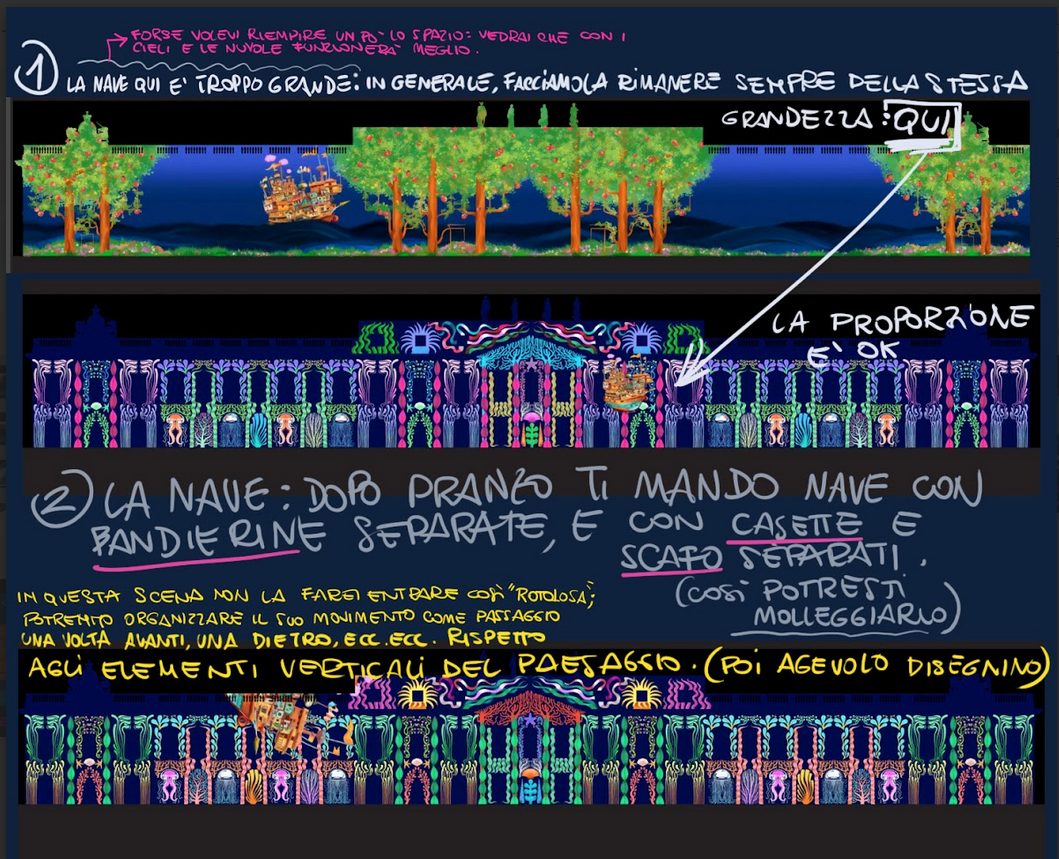 FORSE VOLEVI RIEMPIRE UN PO' LO SPAZIO: VEDRAI CHE CON I
CIELI E LE NUVOLE FUNZIONERA' MEGLIO.
1 LA NAVE QUI E' TROPPO GRANDE: IN GENERALE, FACCIAMOLA RIMANERE SEMPRE DELLA STESSA
GRANDEZZA: QUI
LA PROPORZIONE
E' OK
2 LA NAVE: DOPO PRANZO TI MANDO NAVE CON
BANDIERINE SEPARATE, E CON CASETTE E
SCAFO SEPARATI.
(COSÌ POTRESTI
MOLLEGGIARLO)
IN QUESTA SCENA NON LA FAREI ENTRARE COSÌ "ROTOLOSA";
POTREMMO ORGANIZZARE IL SUO MOVIMENTO COME PASSAGGIO
UNA VOLTA AVANTI, UNA DIETRO, ECC. ECC. RISPETTO
AGLI ELEMENTI VERTICALI DEL PAESAGGIO. (POI AGEVOLO DISEGNINO)